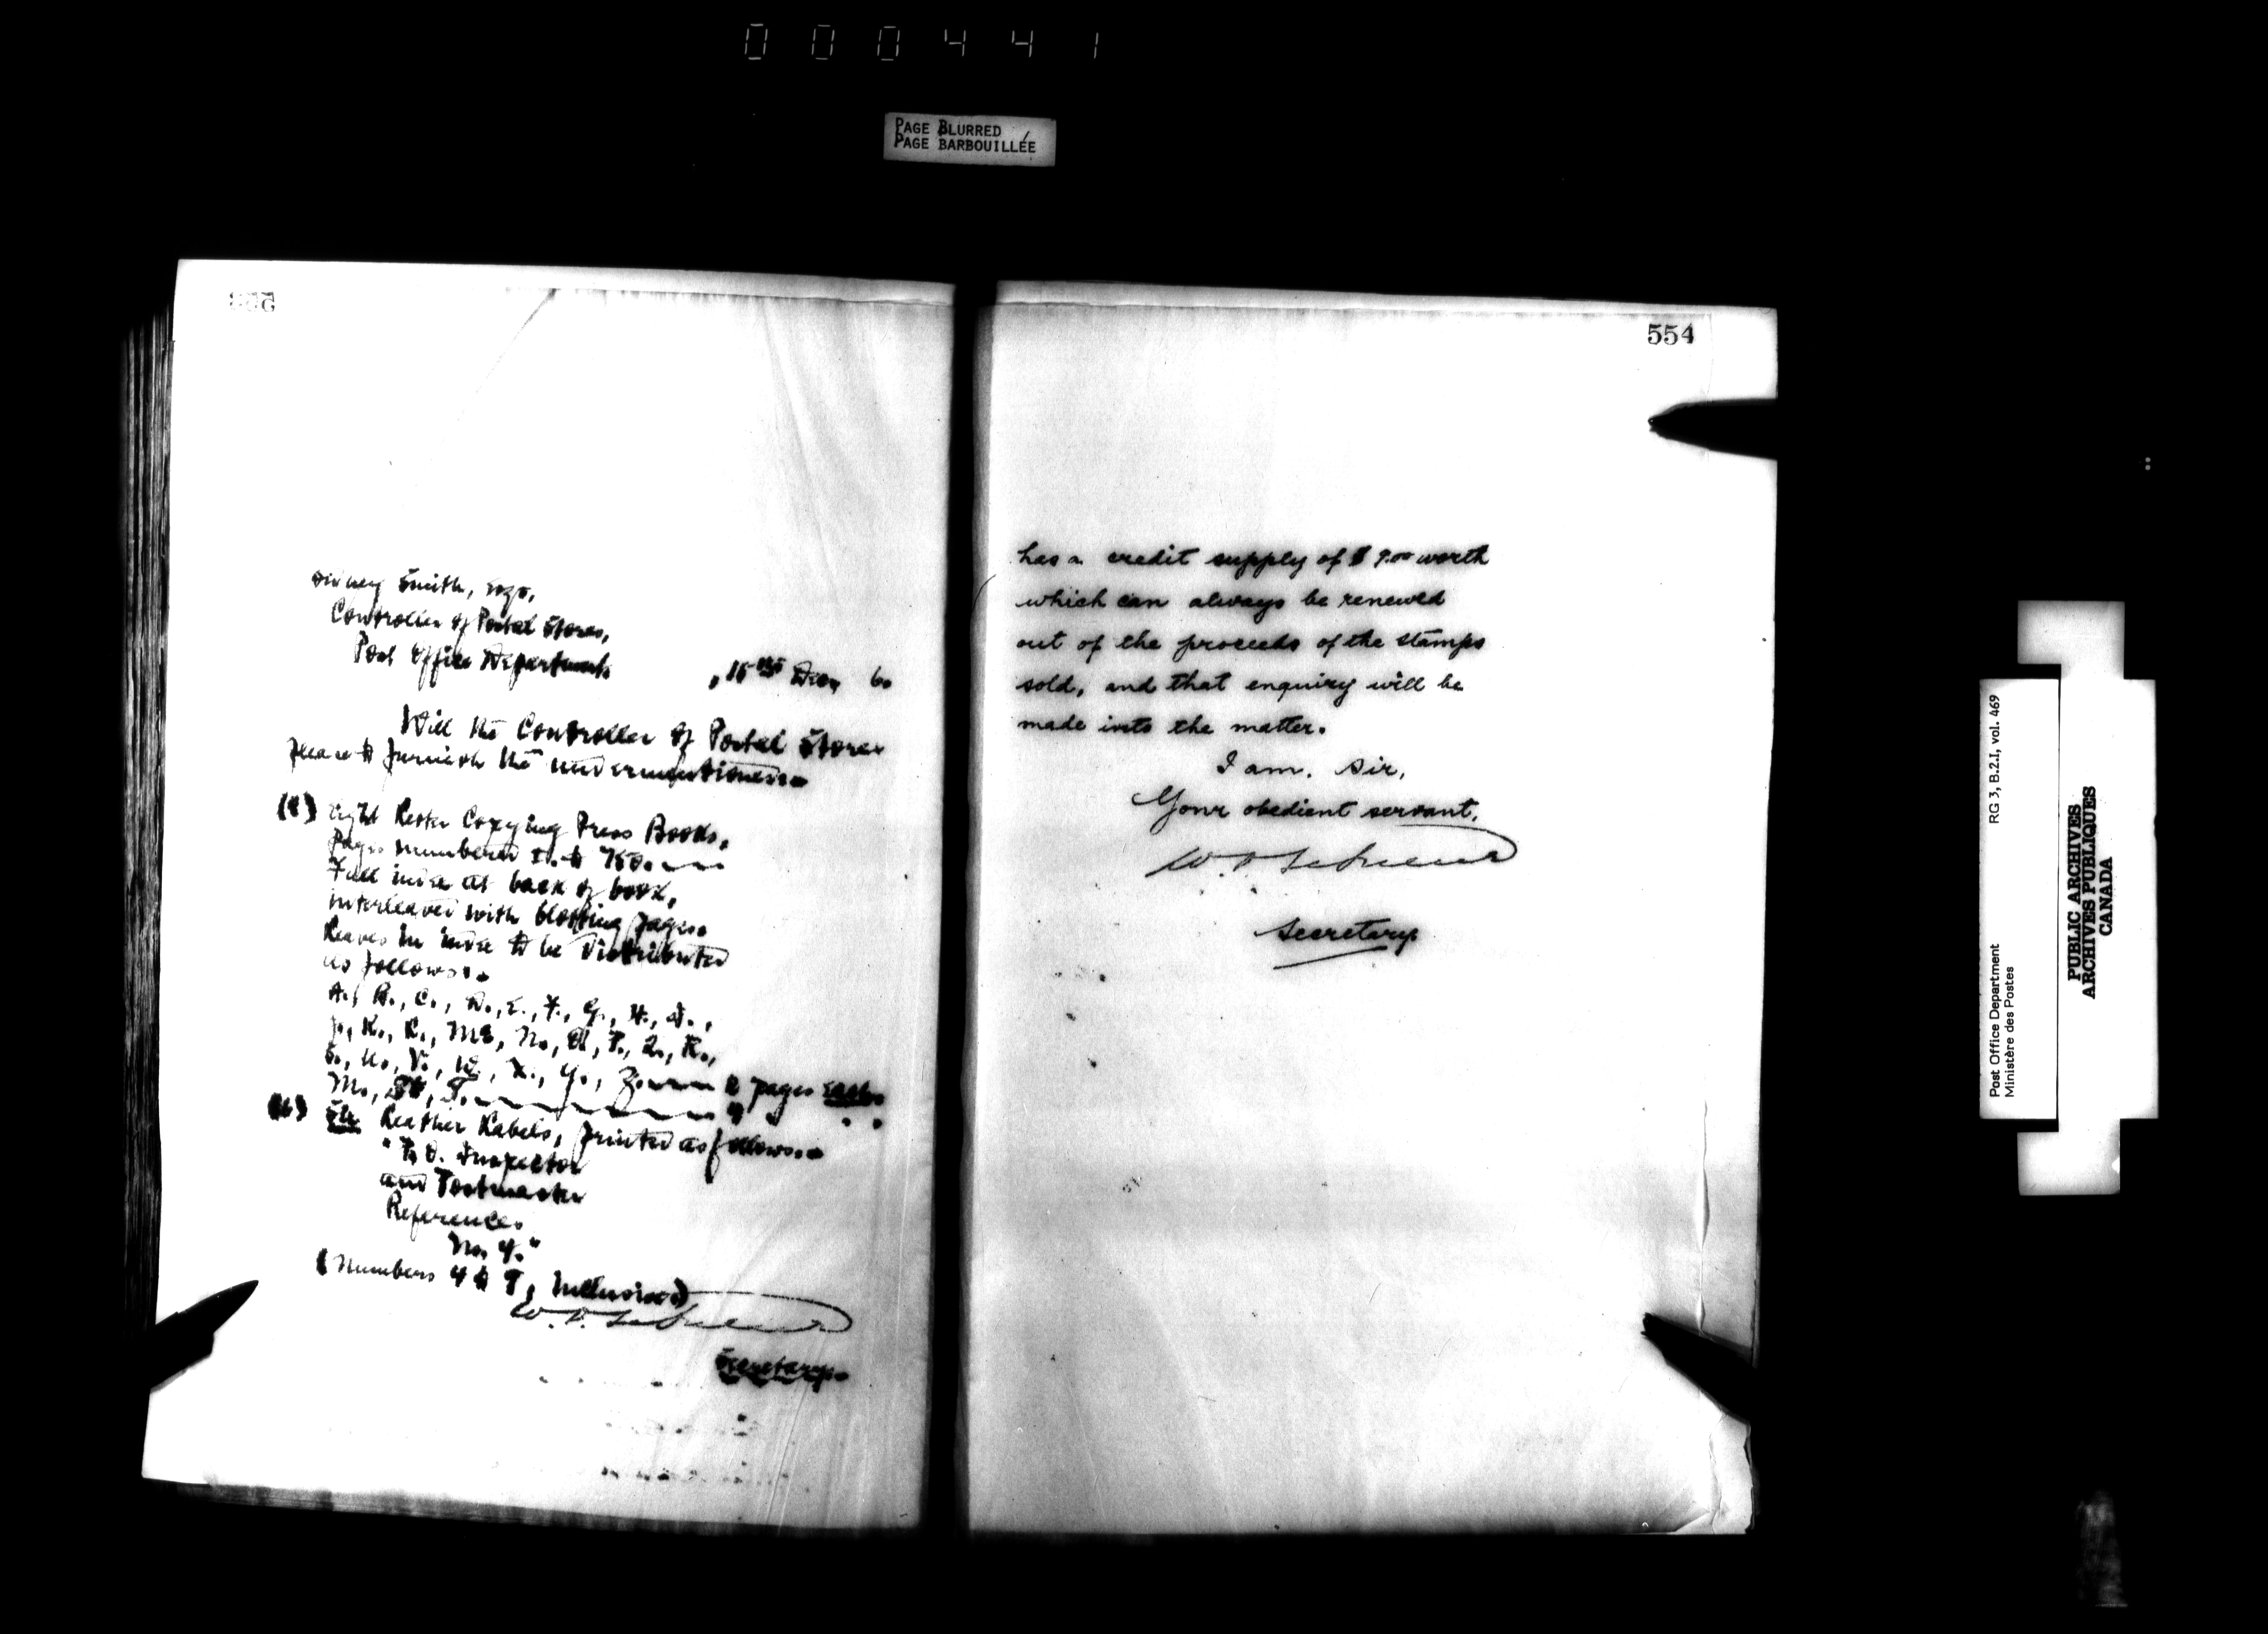 000441
PAGE BLURRED
PAGE BARBOUILLÉE
Sidney Smith, Esqr,
Controller of Postal Stores,
Post Office Department.
15th Decr, 6.
Will the Controller of Postal Stores
please to furnish the undermentioned:-
(8) Eight Letter Copying Press Books,
Pages numbered 1. to 750.
Full index at back of book,
interleaved with blotting pages.
Leaves in index to be distributed
as follows:-
A., B., C., D., E., F., G., H., I.,
J., K., L., Mc, N., O, P., Q., R.,
S., U., V., W., X., Y., Z. 2 pages each.
M.,
(6) Six Leather Labels, printed as follows:-
"P. O. Inspector
and Postmaster
References
No. 4."
(Numbers 4 to 9, inclusive)
Secretary.
554
has a credit supply of $ 9.00 worth
which can always be renewed
out of the proceeds of the stamps
sold, and that enquiry will be
made into the matter.
I am, Sir,
Your obedient servant,
Secretary
Post Office Department
Ministère des Postes
RG 3, B.2.I, vol. 469
PUBLIC ARCHIVES
ARCHIVES PUBLIQUES
CANADA